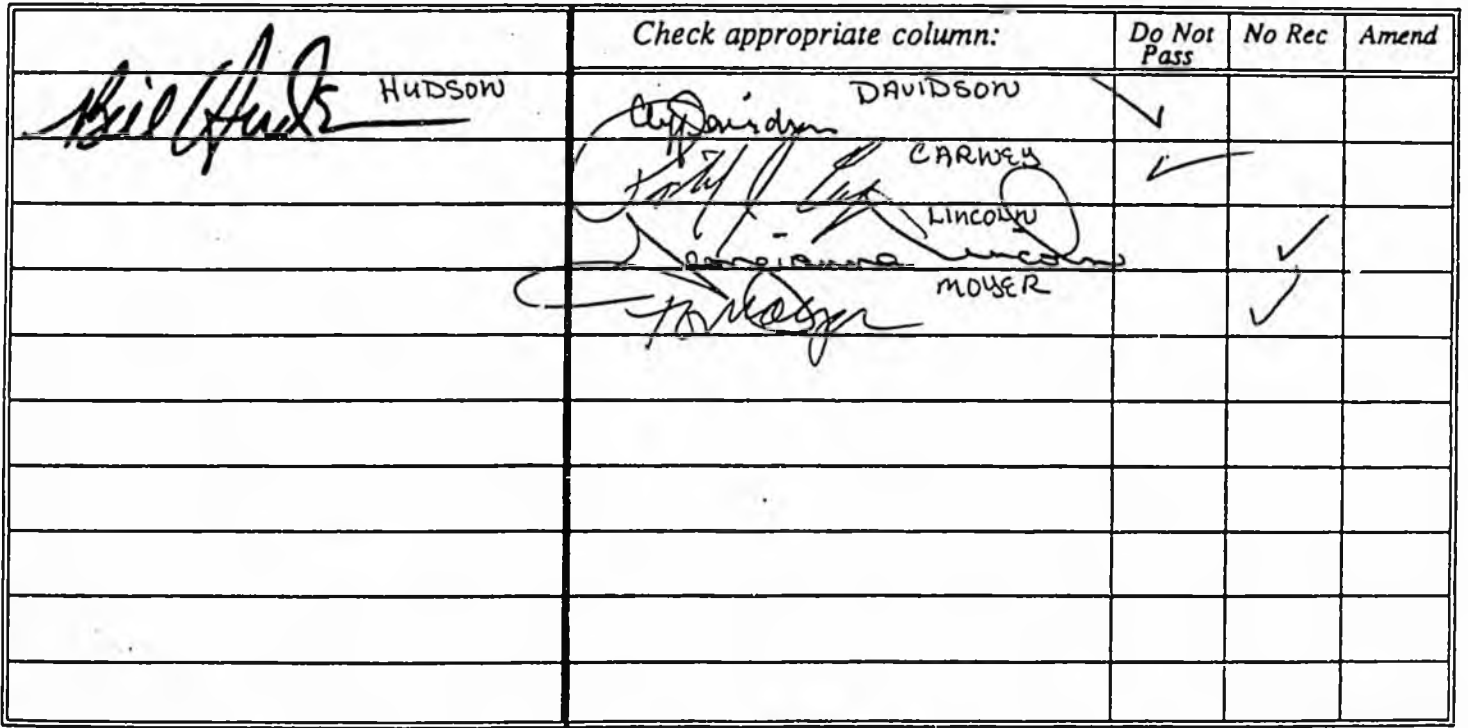 Check appropriate column: Do Not Pass No Rec Amend
Bill Hudson HUDSON
Cliff Davidson DAVIDSON
CARNEY
LINCOLN
Georgianna Lincoln
MOYER
T Moyer